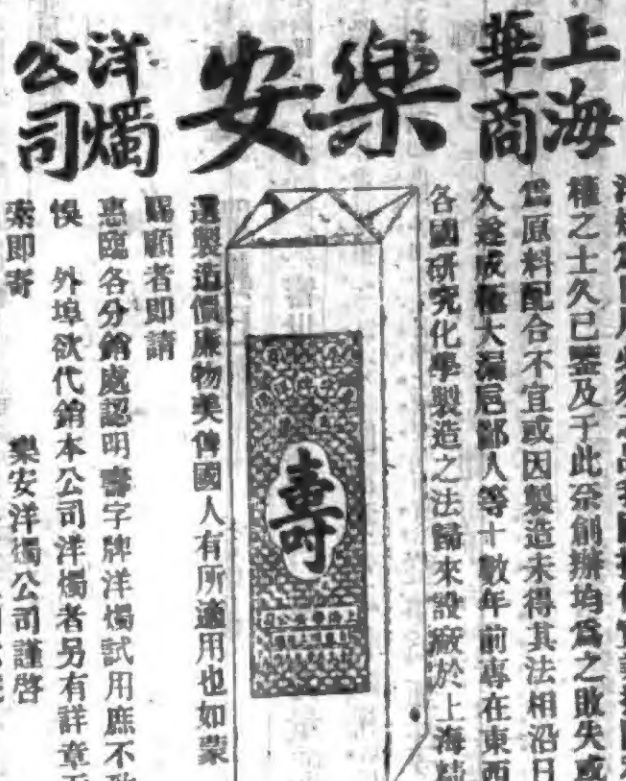 上海華商樂安洋燭公司
權之士久已鑒及于此奈創辦均爲之敗失或
爲原料配合不宜或因製造未得其法相沿日
久遂成極大漏巵鄙人等十數年前專在東西
各國研究化學製造之法歸來設廠於上海精
選製造價廉物美俾國人有所適用也如蒙
賜顧者即請
惠臨各分銷處認明壽字牌洋燭試用庶不致
悞 外埠欲代銷本公司洋燭者另有詳章
索即寄
樂安洋燭公司謹啓
壽